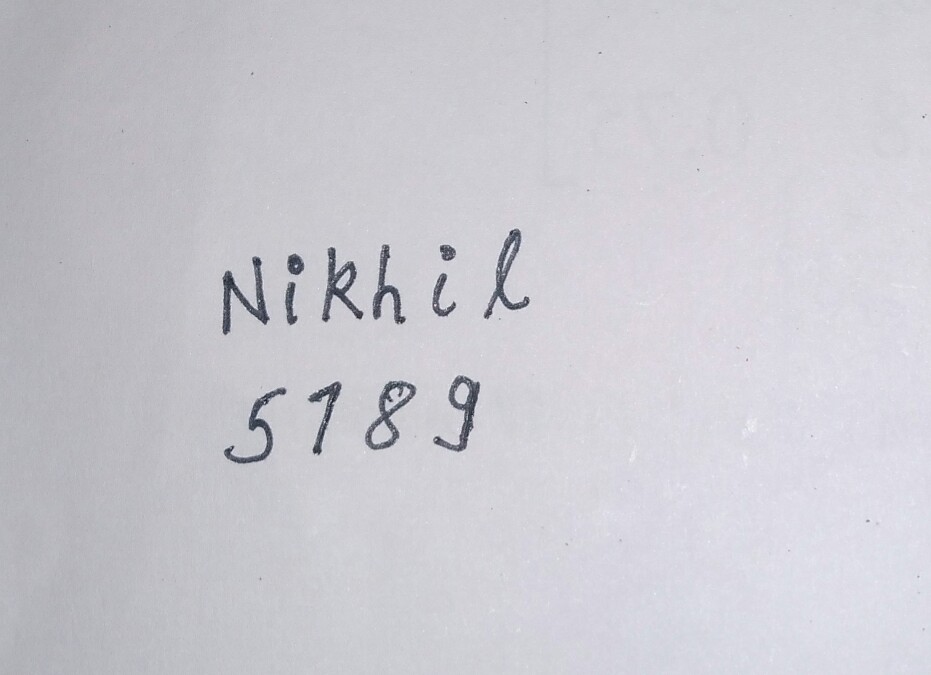 Nikhil
5189